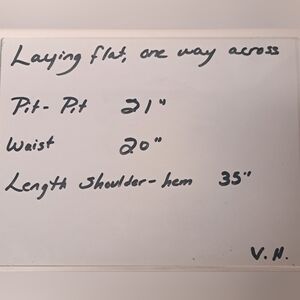 Laying flat, one way across
Pit-Pit 21"
Waist 20"
Length shoulder-hem 35"
V.H.